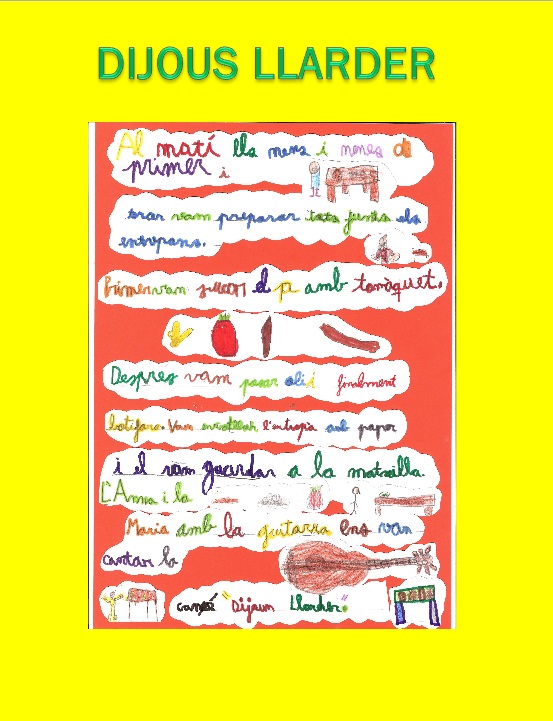 DIJOUS LLARDER
Al matí els nens i nenes de
primer i
vam preparar tots junts els
entrepans.
Primer vam sucar el pa amb tomàquet.
Despres vam posar oli i finalment
botifara. Vam enrotllar l'entrepà amb paper
i el vam guardar a la motxilla.
L'Anna i la
Maria amb la guitarra ens van
cantar la
cançó "Dijous Llarder".